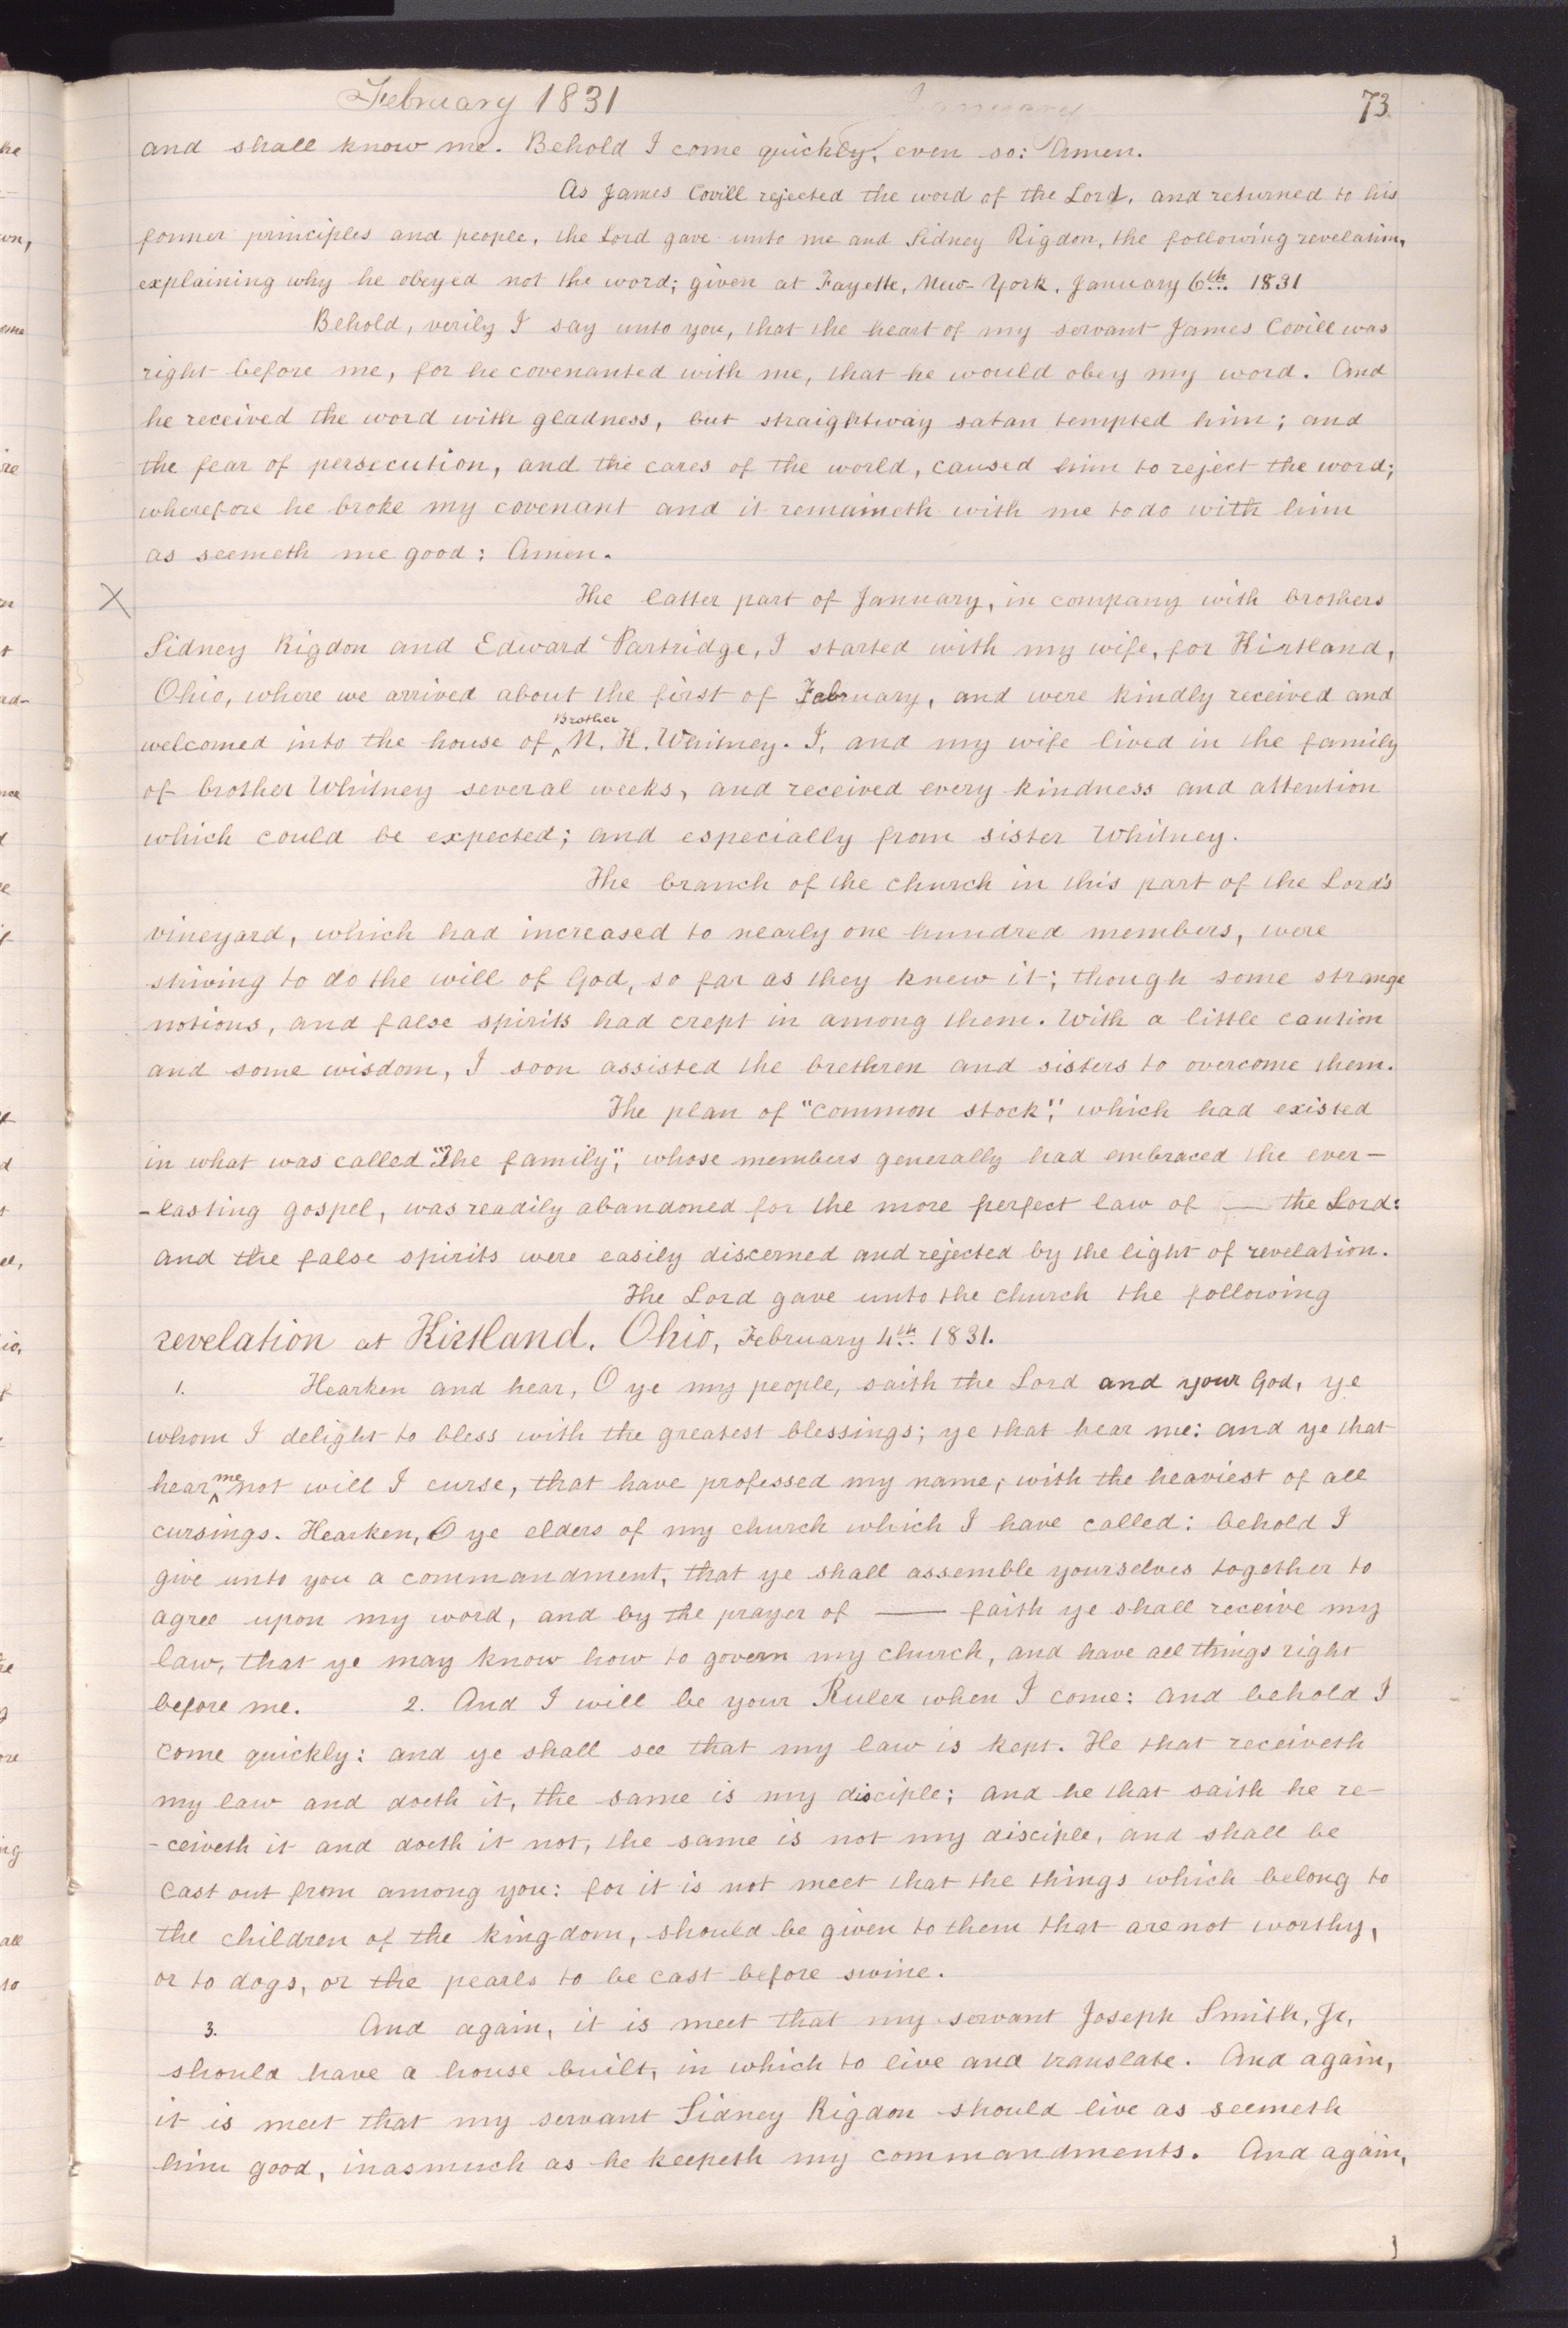 February 1831 January 73
and shall know me. Behold I come quickly, even so: Amen.
As James Covill rejected the word of the Lord, and returned to his
former principles and people, the Lord gave unto me and Sidney Rigdon, the following revelation,
explaining why he obeyed not the word; given at Fayette, New-York, January 6th. 1831
Behold, verily I say unto you, that the heart of my servant James Covill was
right before me, for he covenanted with me, that he would obey my word. And
he received the word with gladness, but straightway satan tempted him; and
the fear of persecution, and the cares of the world, caused him to reject the word;
wherefore he broke my covenant and it remaineth with me to do with him
as seemeth me good: Amen.
X The latter part of January, in company with brothers
Sidney Rigdon and Edward Partridge, I started with my wife, for Kirtland,
Ohio, where we arrived about the first of February, and were kindly received and
welcomed into the house of ^Brother N. K. Whitney. I, and my wife lived in the family
of brother Whitney several weeks, and received every kindness and attention
which could be expected; and especially from sister Whitney.
The branch of the church in this part of the Lord's
vineyard, which had increased to nearly one hundred members, were
striving to do the will of God, so far as they knew it; though some strange
notions, and false spirits had crept in among them. With a little caution
and some wisdom, I soon assisted the brethren and sisters to overcome them.
The plan of "common stock", which had existed
in what was called "The family", whose members generally had embraced the ever-
-lasting gospel, was readily abandoned for the more perfect law of — the Lord:
and the false spirits were easily discerned and rejected by the light of revelation.
The Lord gave unto the church the following
revelation at Kirtland, Ohio, February 4th. 1831.
1. Hearken and hear, O ye my people, saith the Lord and your God, ye
whom I delight to bless with the greatest blessings; ye that hear me: and ye that
hear ^me not will I curse, that have professed my name, with the heaviest of all
cursings. Hearken, O ye elders of my church which I have called: behold I
give unto you a commandment, that ye shall assemble yourselves together to
agree upon my word, and by the prayer of — faith ye shall receive my
law, that ye may know how to govern my church, and have all things right
before me. 2. And I will be your Ruler when I come: and behold I
come quickly: and ye shall see that my law is kept. He that receiveth
my law and doeth it, the same is my disciple; and he that saith he re-
-ceiveth it and doeth it not, the same is not my disciple, and shall be
cast out from among you: for it is not meet that the things which belong to
the children of the kingdom, should be given to them that are not worthy,
or to dogs, or the pearls to be cast before swine.
3. And again, it is meet that my servant Joseph Smith, Jr,
should have a house built, in which to live and translate. And again,
it is meet that my servant Sidney Rigdon should live as seemeth
him good, inasmuch as he keepeth my commandments. And again,